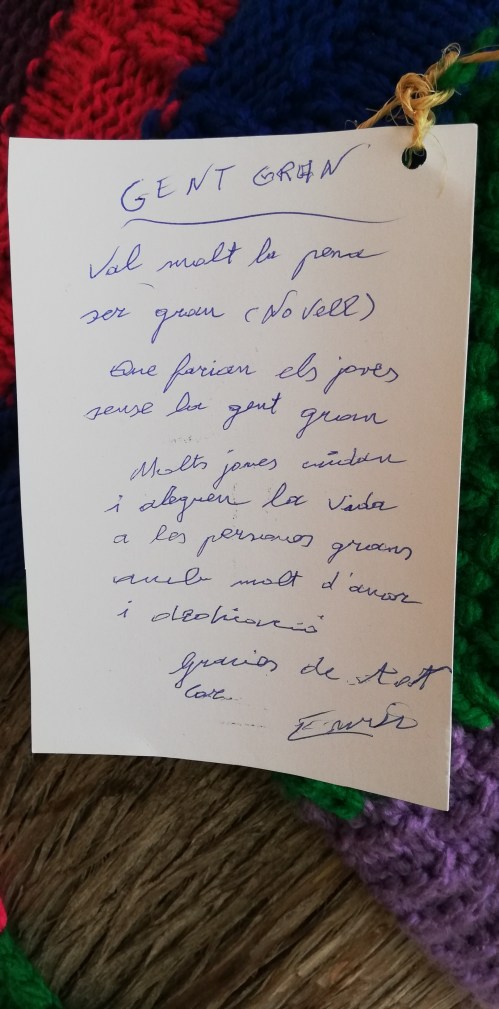 GENT GRAN
Val molt la pena
ser gran (NoVell)
Que farian els joves
sense la gent gran
Molts joves cuidan
i alegren la vida
a les persones grans
amb molt d'amor
i dedicació
Gracias de tot
Cor